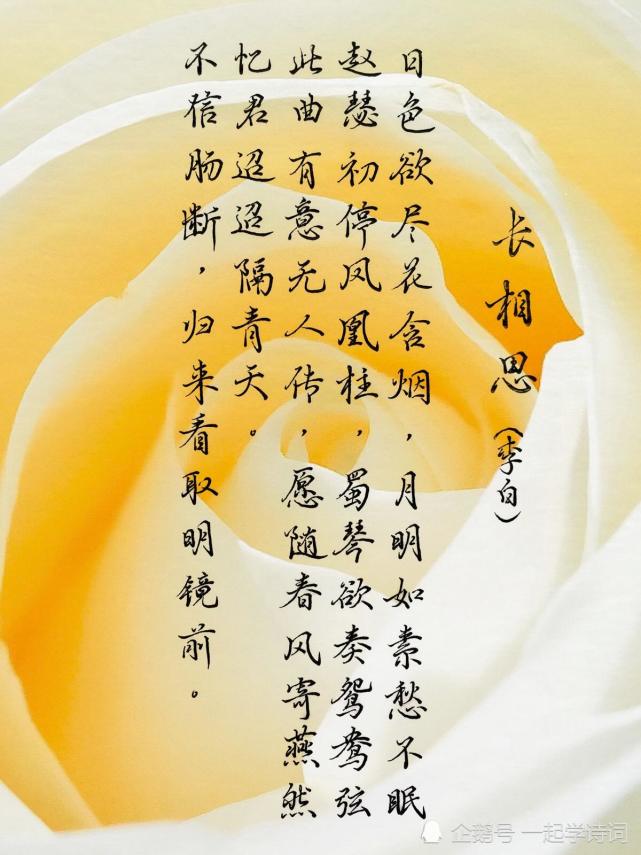 长相思（李白）
日色欲尽花含烟，月明如素愁不眠
赵瑟初停凤凰柱，蜀琴欲奏鸳鸯弦
此曲有意无人传，愿随春风寄燕然
忆君迢迢隔青天。
不信肠断，归来看取明镜前。
企鹅号 一起学诗词